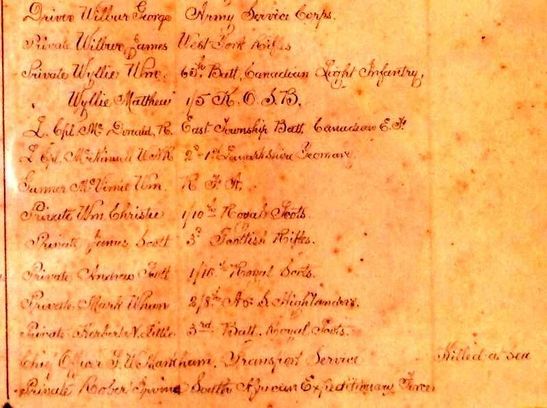 Driver Wilbur George Army Service Corps.
Private Wilbur James West York Rifles
Private Wyllie Wm. 65th Batt. Canadian Light Infantry,
" Wyllie Matthew 1/5 K. O. S. B.
L. Cpl. Mc Donald, R. East Township Batt. Canadian E. F.
L Cpl. McKinnell 2nd 1st Lanarkshire Yeomanry
Gunner Wm. R. F. A.
Private Wm Christie 1/10th Royal Scots.
Private James Scott 3rd Scottish Rifles.
Private Andrew 1/16th Royal Scots.
Private Mark Whan 2/8th A & S Highlanders.
Private Herbert N. Little 3rd Batt. Royal Scots.
Chief Officer Markham, Transport Service Killed at Sea
Private Robert Irvine South African Expeditionary Force